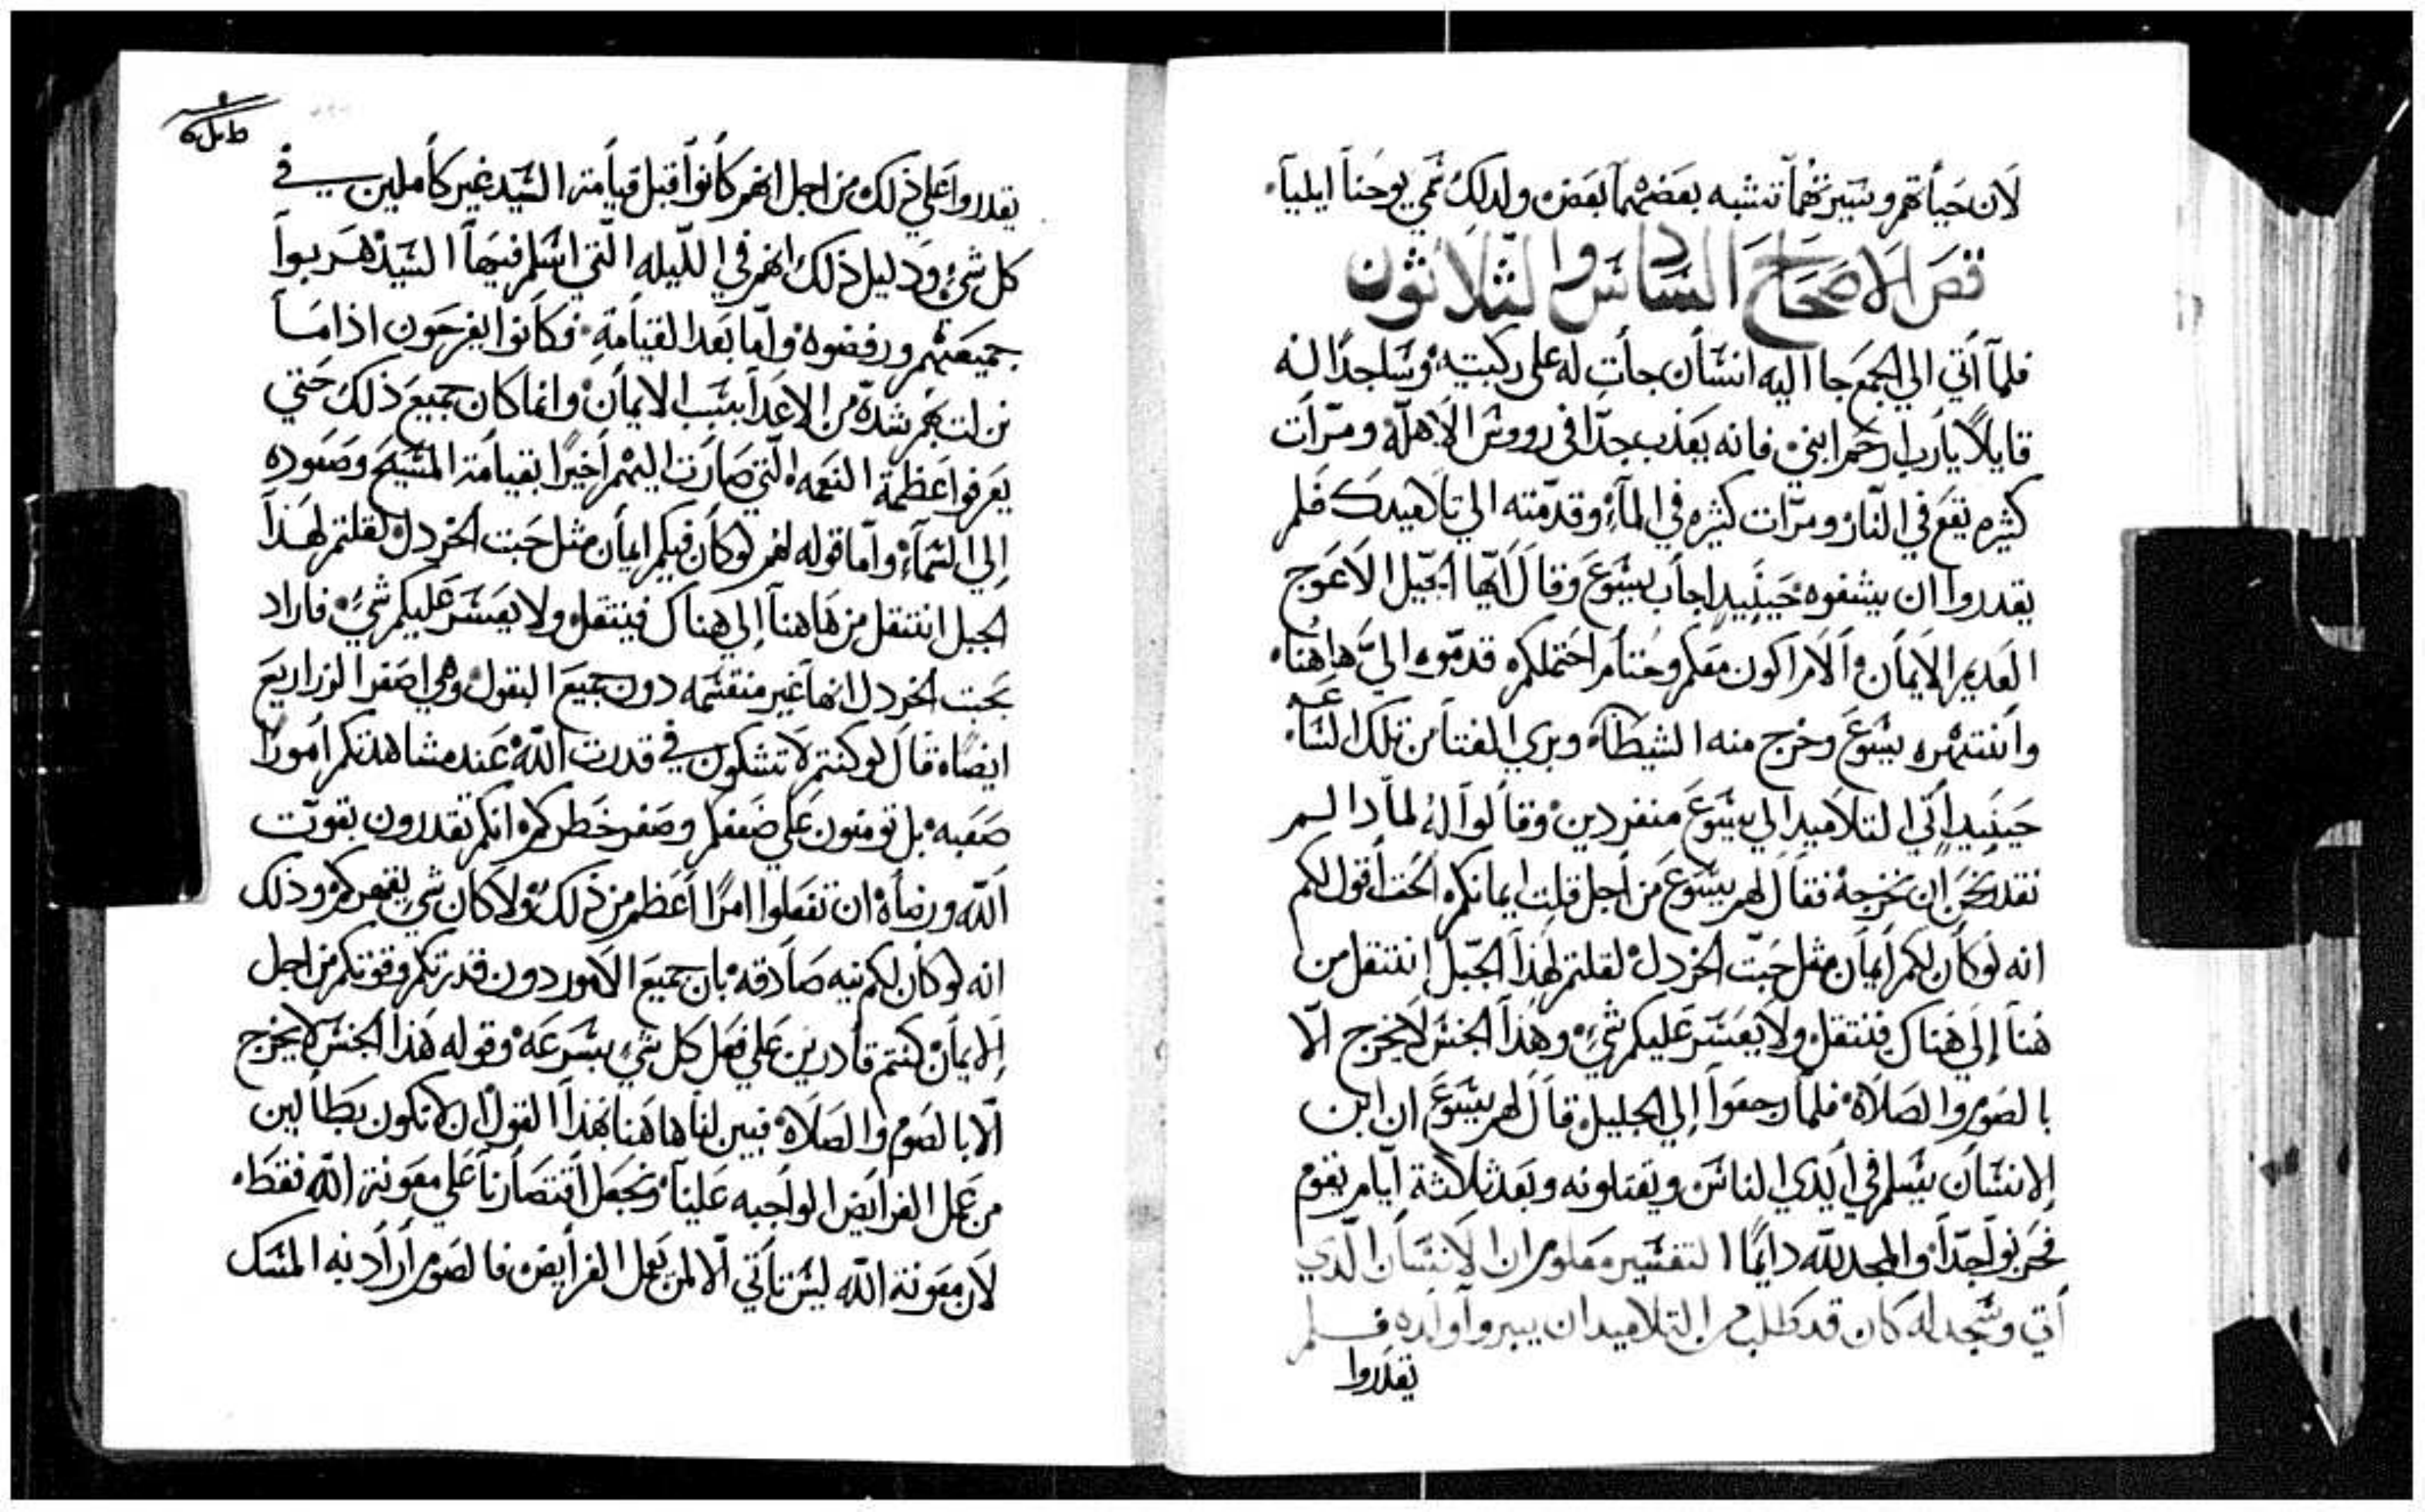 لان حياتهم وسيرتهما تشبه بعضهما بعض ولدلك سمي يوحنا ايليا
قص الاصحاح السادس والثلاثون
فلما اتي الي الجمع جا اليه انسان جات له على ركبتيه وساجدًا له
قايلًا يارب ارحم ابني فانه يعذب جدّا في رووس الاهلّه ومرّات
كثيره يقع في النّار ومرّات كثيره في المآء وقدّمته الي تلاميدك فلم
يقدروا ان يشفوه حينيد اجاب يسوع وقال ايّها الجيل الاعوج
العديم الايمان الامرا كون معكم وحتام احتملكم قدموه اليّ هاهنا
وانتهره يسوع وخرج منه الشيطان وبري الفتا من تلك الساعه
حينيد اتي التلاميد الي يسوع منفردين وقالوا له لمادا لم
نقدر نحن ان نخرجه فقال لهم يسوع من اجل قلت ايمانكم الحق اقول لكم
انه لو كان لكم ايمان مثل حبّت الخردل لقلتم لهذا الجبل إنتقل من
هنا إلي هناك فينتقل ولا يعسر عليكم شيء وهذا الجنس لا يخرج الّا
بالصوم والصلاة فلما رجعوا إلي الجليل قال لهم يسوع ان ابن
الانسان يسلم في ايدي الناس ويقتلونه وبعد ثلاثة ايام يقوم
فحزنوا جدّا والمجد للّه دايمًا التفسير معلوم ان الانسان الّدي
أتي وسجد له كان قد طلب من التلاميد ان يبروا ولده فلم
يقدروا
يقدروا علي ذلك من اجل انهم كانوا قبل قيامة السيد غير كاملين في
كل شيء ودليل ذلك انهم في اللّيله الّتي اسلم فيها السيد هربوا
جميعهم ورفضوه وامّا بعد القيامة فكانوا يفرحون اذا ما
نزلت بهم شدّة من الاعدا بسبب الايمان وانما كان جميع ذلك حتي
يعرفوا عظمة النعمه الّتي صارت اليهم اخيرًا بقيامة المسيح وصعوده
إلي السمآء وامّا قوله لهم لو كان فيكم ايمان مثل حبت الخردل لقلتم لهذا
الجبل إنتقل من هاهنا إلي هناك فينتقل ولا يعسر عليكم شيء فاراد
بحبت الخردل انها غير منقسمه دون جميع البقول وهي اصغر الزراريع
ايضًا قال لو كنتم لا تشكون في قدرت اللّه عند مشاهدتكم امورًا
صعبه بل تومنون علي ضعفكم وصغر خطركم انكم تقدرون بقوّت
اللّه ورضاه ان تفعلوا امرًا اعظم من ذلك ولا كان شي يقهركم وذلك
انه لو كان لكم نيه صادقه بان جميع الامور دون قدرتكم وقوتكم من اجل
الايمان كنتم قادرين علي فعل كل شي بسرعه وقوله هذا الجنس لا يخرج
الّا بالصوم والصلاة فبين لنا هاهنا بهذا القول ان لا نكون بطّالين
من عمل الفرايض الواجبه علينا ونجعل اقتصارنا علي معونة اللّه فقط
لان معونة اللّه ليس تاتي الّا لمن يعمل الفرايض فالصوم اراد به المسك